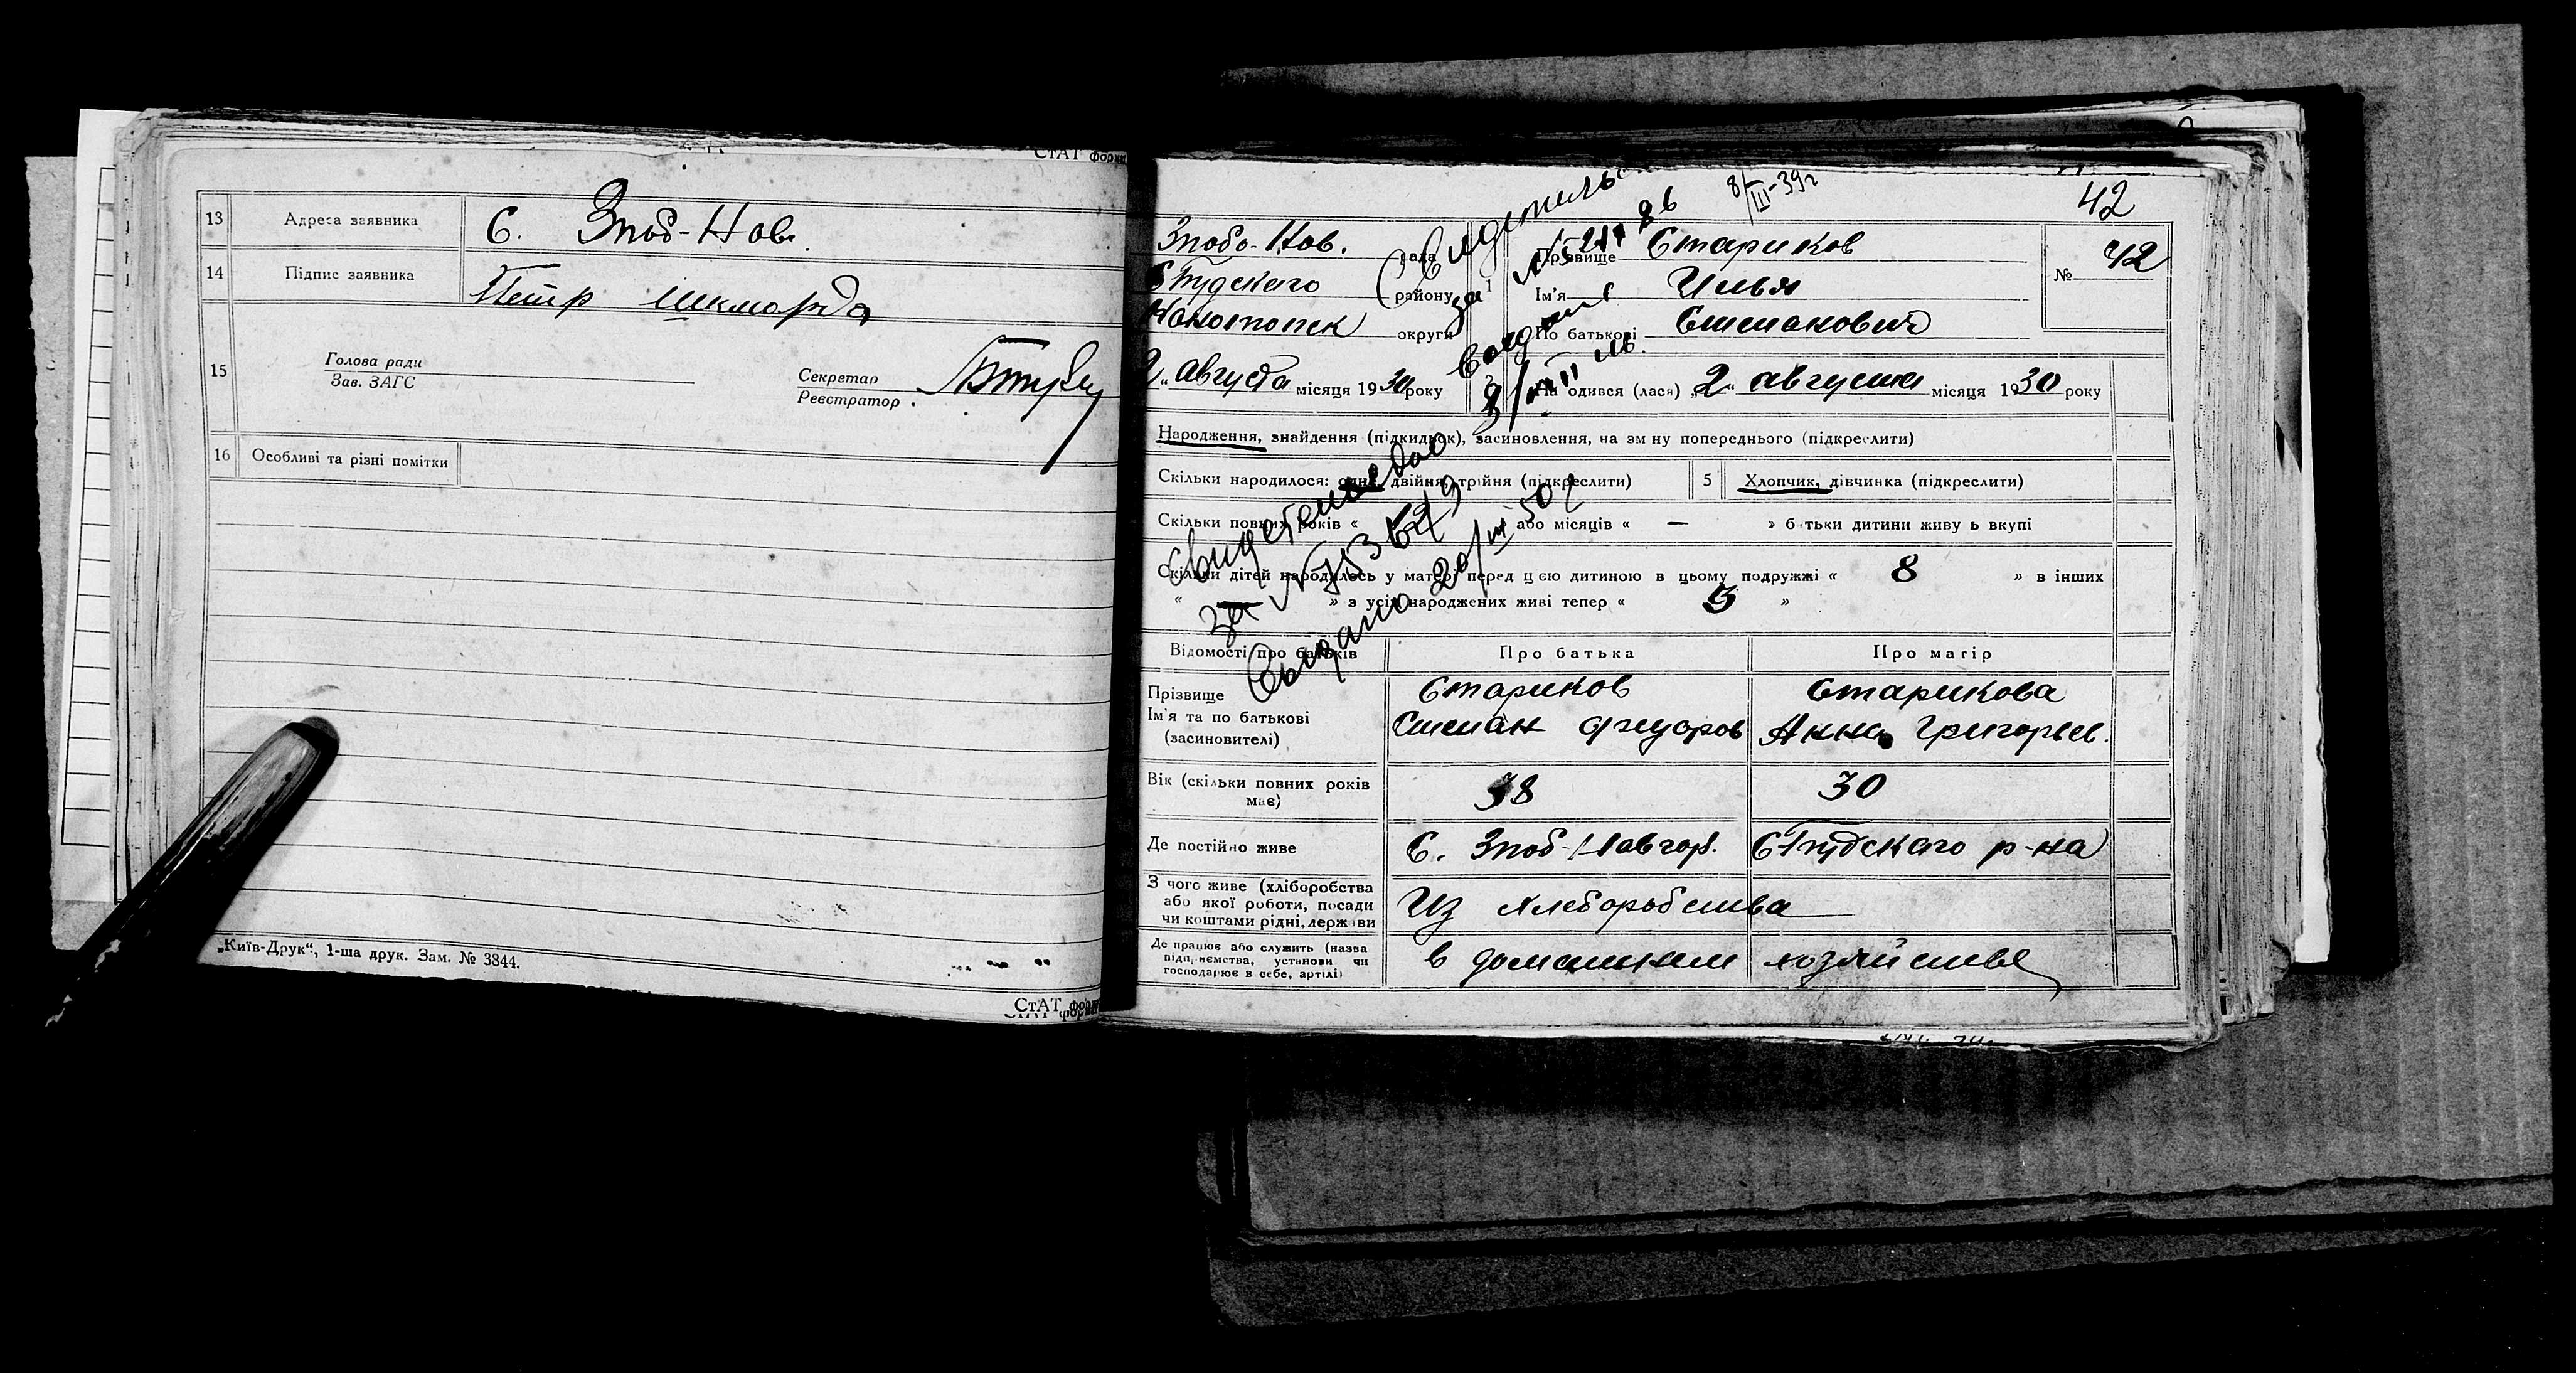 СтАТ форм
13 Адреса заявника С. Зноб-Нов.
14 Підпис заявника Петр Шкморда
15 Голова ради
Зав. ЗАГС
Секретар
Реєстратор
16 Особливі та різні помітки
„Київ-Друк“, 1-ша друк. Зам. № 3844.
СтАТ форм
8/III-39г
42
Знобо-Нов. рада
С-Будского району
Конотопск округи
1 Прізвище Стариков
Ім'я Илья
По батькові Степанович
№ 42
2 „ Августа місяця 1930 року
2 На одився (лася) „2“ августа місяця 1930 року
Народження, знайдення (підкидьок), засиновлення, на зм ну попереднього (підкреслити)
Скільки народилося: одне, двійня, трійня (підкреслити)
5 Хлопчик, дівчинка (підкреслити)
Скільки повних років « або місяців « — » б тьки дитини живу ь вкупі
Скільки дітей народилось у матері перед цією дитиною в цьому подружжі « 8 » в інших
« — » з усіх народжених живі тепер « 5 »
Свидетельство
за №
Выдано 20/III 50г
Відомості про батьків Про батька Про матір
Прізвище Стариков Старикова
Ім'я та по батькові Степан Федоров Анна Григорьев.
(засиновителі)
Вік (скільки повних років має) 38 30
Де постійно живе С. Зноб-Новгор. С-Будского р-на
З чого живе (хліборобства
або якої роботи, посади
чи коштами рідні, держави
Из хлеборобства
Де працює або служить (назва
підприємства, установи чи
господарює в себе, артілі)
в домашнем хозяйстве